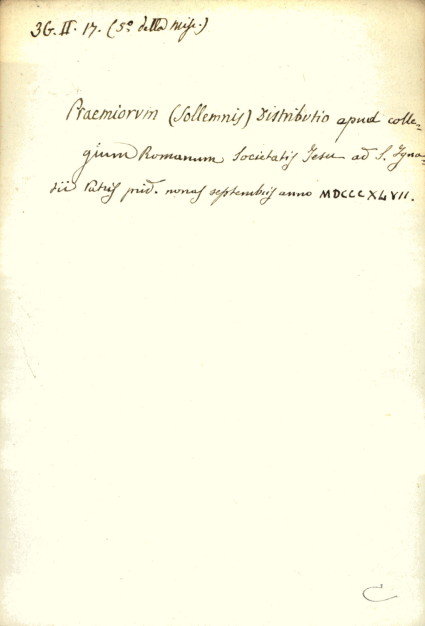 36. II. 17. (5º della Misc.)
Praemiorum (Sollemnis) Distributio apud colle=
gium Romanum Societatis Jesu ad S. Igna=
tii Patris prid. nonas septembris anno MDCCCXLVII.
C